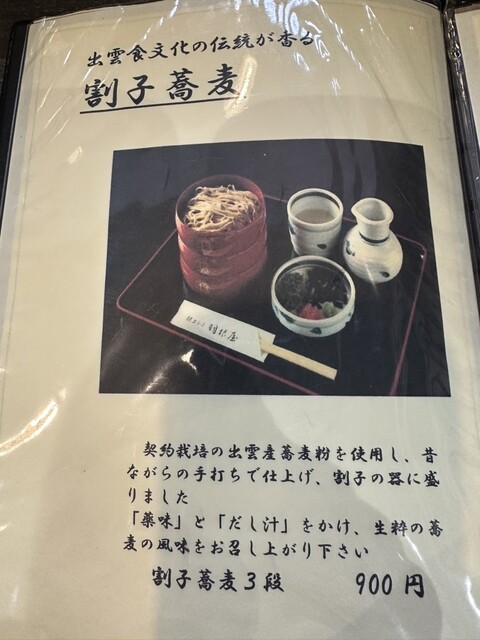 出雲食文化の伝統が香る
割子蕎麦
羽根屋
契約栽培の出雲産蕎麦粉を使用し、昔
ながらの手打ちで仕上げ、割子の器に盛
りました
「薬味」と「だし汁」をかけ、生粋の蕎
麦の風味をお召し上がり下さい
割子蕎麦3段 900円